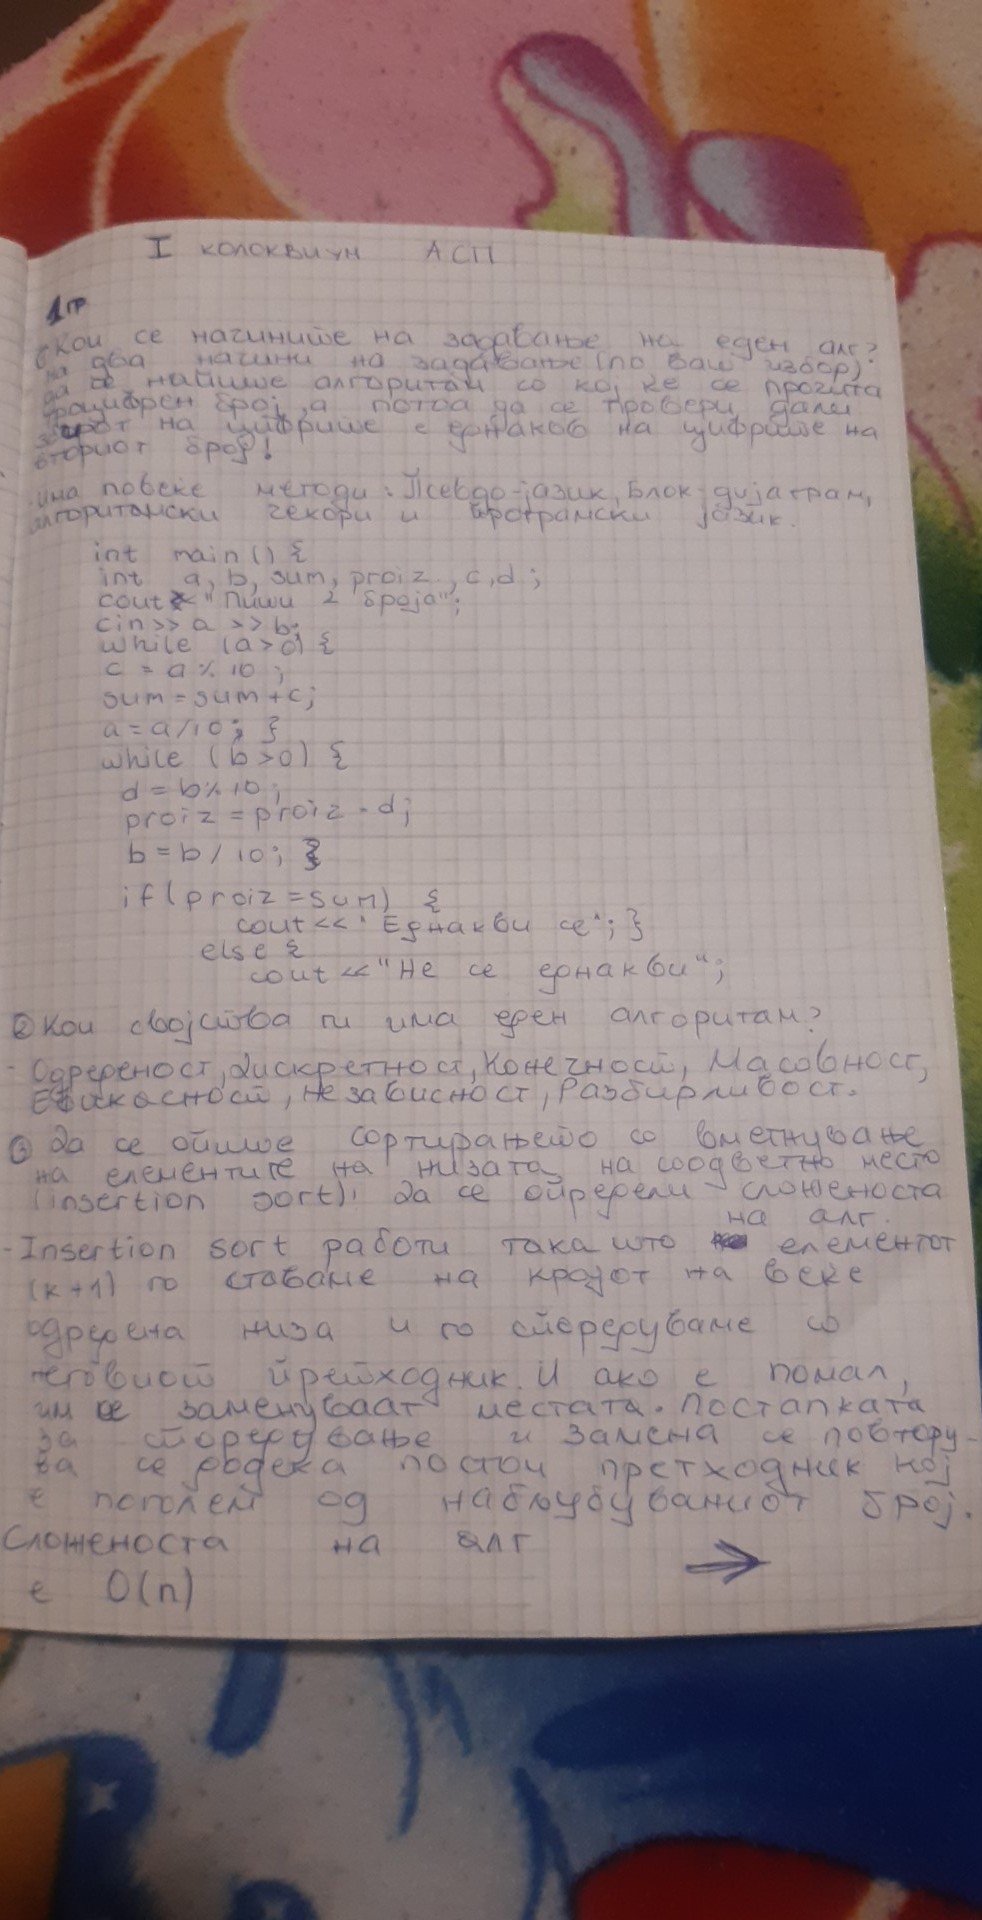 I колоквиун АСП
1 гр
Кои се начините на задавање на еден алг?
на два начини на задавање (по ваш избор)
да се напише алгоритам со кој ќе се прочита
број, а потоа да се провери дали
на цифрите е еднаков на цифрите на
вториот број!
има повеќе методи: Псевдо-јазик, Блок-дијаграм,
алгоритамски чекори и програмски јазик.
int main() {
int a, b, sum, proiz, c, d;
cout << "Пиши 2 броја";
cin>> a >> b;
while (a>0) {
c = a % 10;
sum = sum + c;
a = a/10; }
while (b>0) {
d = b % 10;
proiz = proiz · d;
b = b / 10; }
if (proiz = sum) {
cout << "Еднакви се"; }
else {
cout << "Не се еднакви";
2 Кои својства ги има еден алгоритам?
- Одреденост, Дискретност, Конечност, Масовност,
Ефикасност, Независност, Разбирливост.
3 Да се опише сортирањето со вметнување
на елементите на низата на соодветно место
(insertion sort), да се определи сложеноста
на алг.
- Insertion sort работи така што елементот
(k+1) го ставаме на крајот на веќе
одредена низа и го споредуваме со
неговиот претходник. И ако е помал,
им се заменуваат местата. Постапката
за споредување и замена се повтору-
ва се додека постои претходник кој
е поголем од набљудуваниот број.
Сложеноста на алг
е O(n)